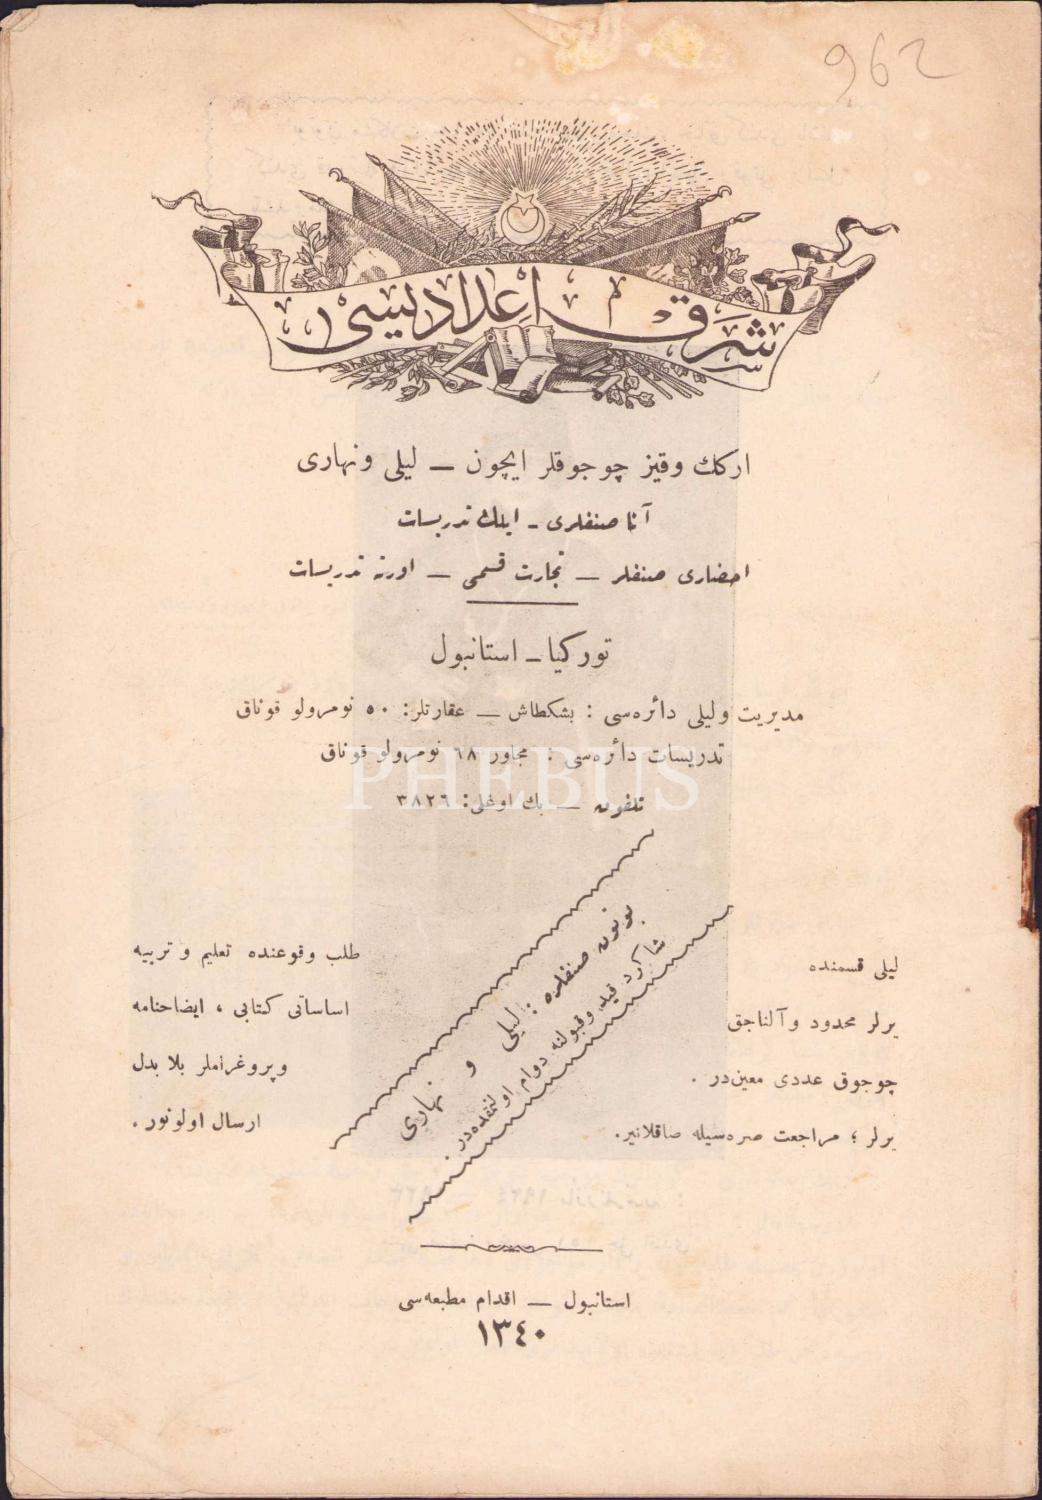 962
شرق اعدادیسی
اركك وقیز چوجوقلر ایچون — لیلی ونهاری
آنا صنفلری - ایلك تدریسات
احضاری صنفلر — تجارت قسمی — اورته تدریسات
توركیا - استانبول
مدیریت ولیلی دائره‌سی : بشكطاش — عقارتلر: ٥٠ نومرولو قوناق
تدریسات دائره‌سی : مجاور ٦٨ نومرولو قوناق
PHEBUS
تلفون — بك اوغلی: ٣٨٢٦
لیلی قسمنده
یرلر محدود وآلناجق
چوجوق عددی معین‌در .
یرلر ؛ مراجعت صره‌سیله صاقلانیر.
بوتون صنفلره : لیلی و نهاری
شاكرد قید وقبولنه دوام اولنمقده‌در .
طلب وقوعنده تعلیم و تربیه
اساساتی كتابی ، ایضاحنامه
وپروغراملر بلا بدل
ارسال اولونور .
استانبول — اقدام مطبعه‌سی
١٣٤٠